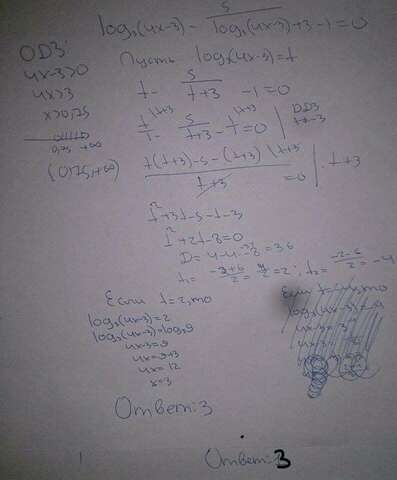 log₃(4x-3) - 5/(log₃(4x-3)+3) - 1 = 0
ОДЗ:
4x-3>0
4x>3
x>0,75
0,75 +∞
(0,75;+∞)
Пусть log₃(4x-3)=t
t - 5/(t+3) - 1 = 0
t/1 - 5/(t+3) - 1/1 = 0 | ОДЗ t≠-3
(t(t+3)-5-(t+3))/(t+3) = 0 | · t+3
t²+3t-5-t-3
t²+2t-8=0
D=4-4·-8=36
t₁= (-2+6)/2 = 4/2 = 2; t₂= (-2-6)/2 = -4
Если t=2, то
log₃(4x-3)=2
log₃(4x-3)=log₃9
4x-3=9
4x=9+3
4x=12
x=3
Если t=
Ответ: 3
Ответ: 3